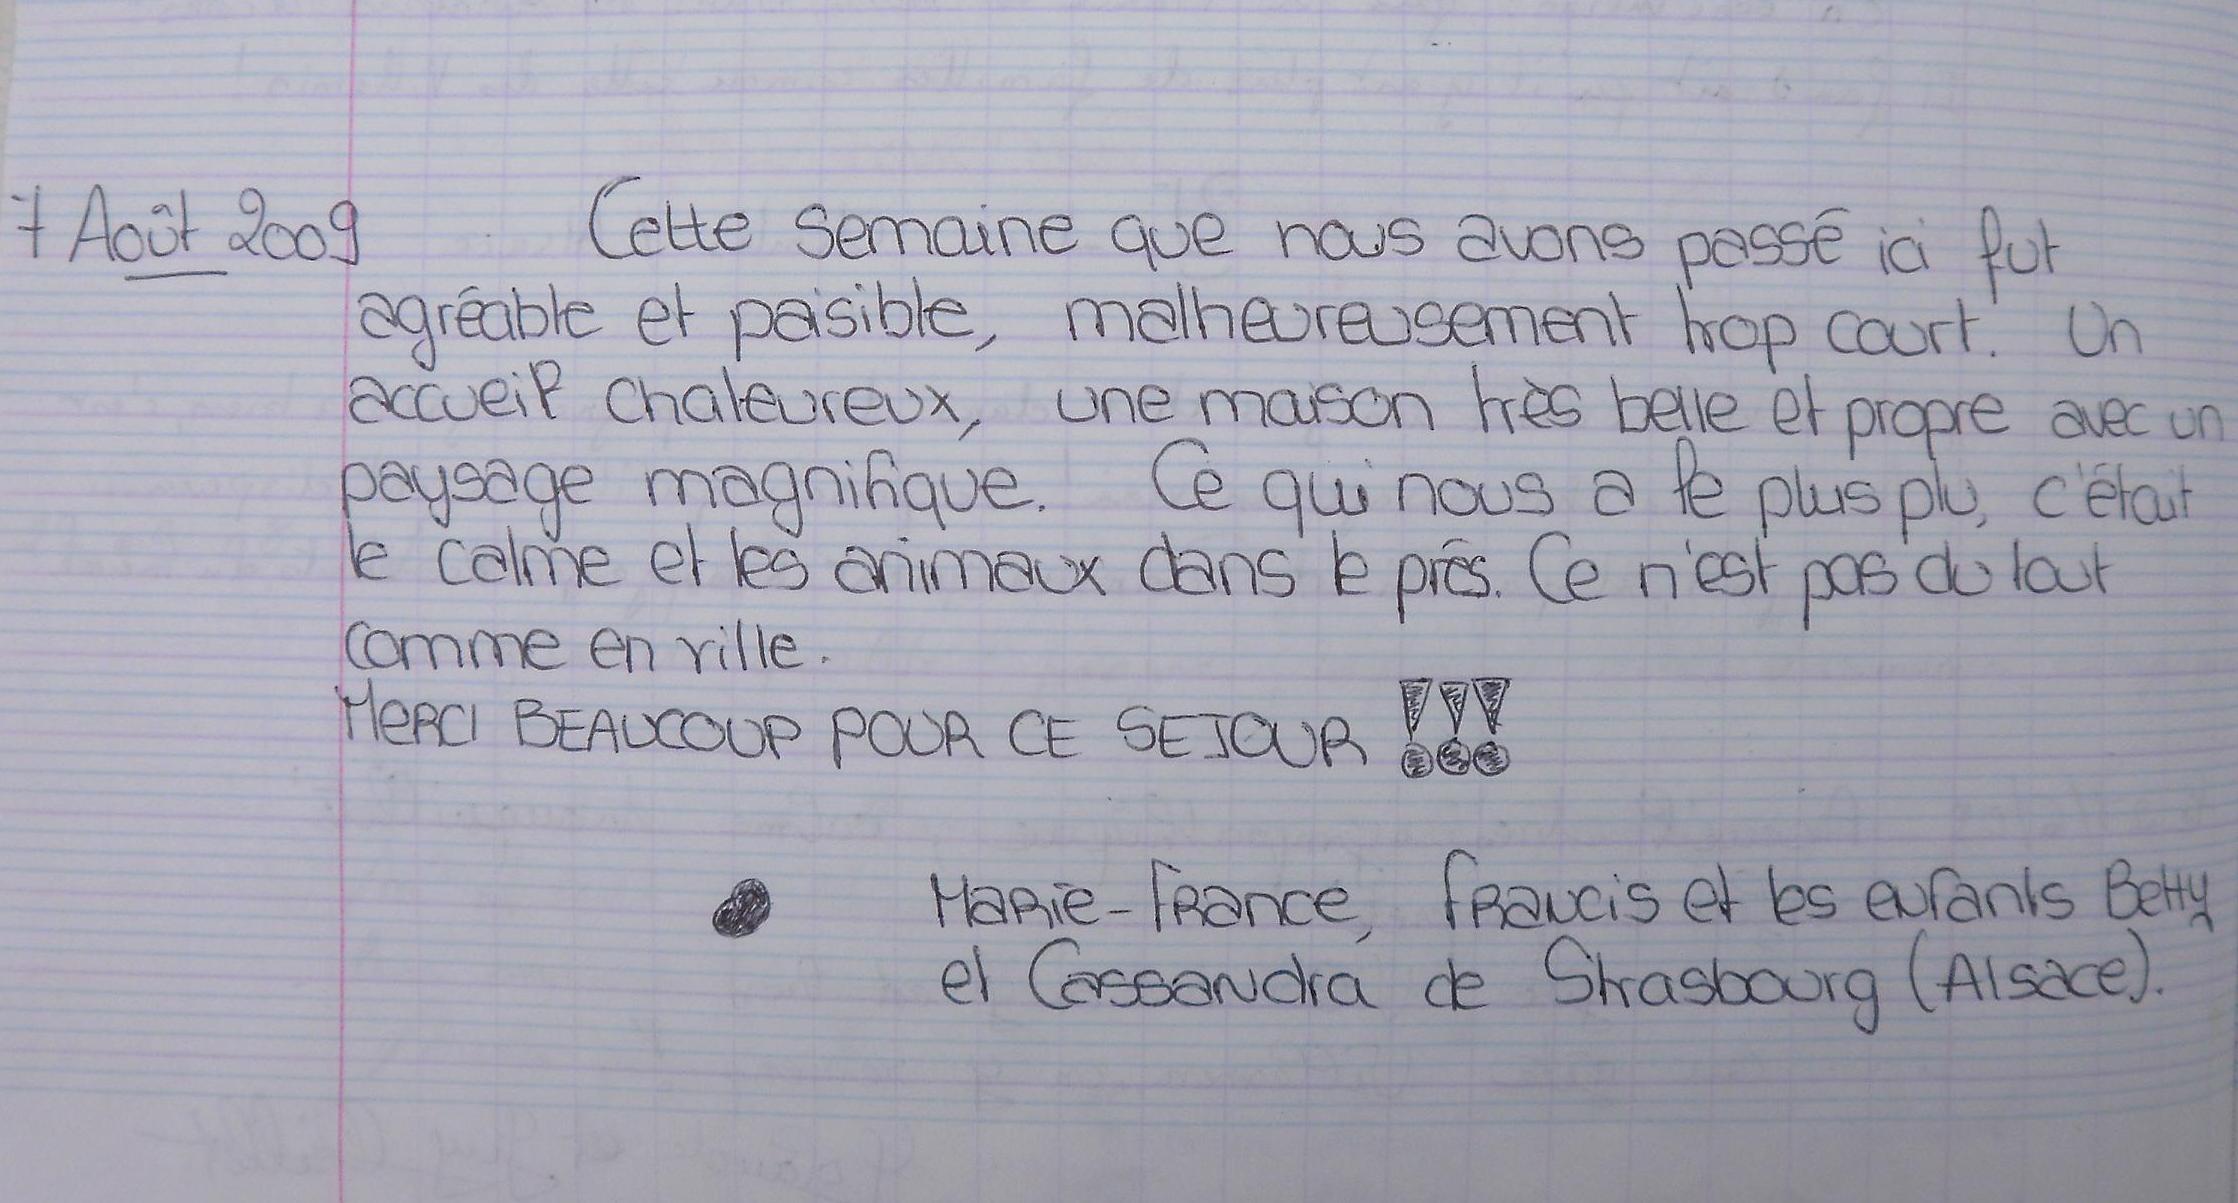 7 Août 2009 Cette semaine que nous avons passé ici fut
agréable et paisible, malheureusement trop court. Un
accueil chaleureux, une maison très belle et propre avec un
paysage magnifique. Ce qui nous a le plus plu, c'était
le calme et les animaux dans le prés. Ce n'est pas du tout
comme en ville.
MERCI BEAUCOUP POUR CE SEJOUR !!!
Marie-France, Francis et les enfants Betty
et Cassandra de Strasbourg (Alsace).